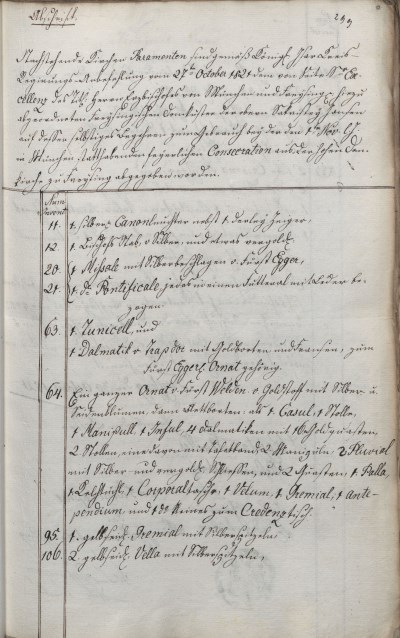 Abschrift.
Nachstehende Kirchen Paramenten sind gemäß Königl. Isar Kreis
Regierungs Anbefehlung vom 27ten October 1821 dem von Seiner Ex-
cellenz des Titl. Herrn Erzbischofes von München und Freysing hiezu
abgeordneten Freysingischen Domküster der obern Sakristey
auf dessen selbstiges Begehren zum Gebrauch bey der den 1ten Nov.
in München statthabenden feyerlichen Consecration aus der hohen Dom-
kirche zu Freysing abgegeben worden.
Num.
Invent.
11. 1 silberner Canonleuchter nebst 1 derley Zeiger,
12. 1 Bischofs Stab v. Silber, und etwas vergold.
20. 1 Missale mit Silberbeschlagen v. Fürst Egger,
21. 1 do Pontificale, jedes in einem Futteral mit Leder be-
zogen
63. 1 Tunicell, und
1 Dalmatik v. Drapdor mit Goldborten und Fransen, zum
Fürst Eggerl. Ornat gehörig.
64. Ein ganzer Ornat v. Fürst Welden v. Goldstoff mit Silber u.
Seidenblumen, dann Bortborten als 1 Casul, 1 Stolla,
1 Manipull, 1 Inful, 4 Dalmatiken mit 16 Goldquasten,
2 Stollen, eine davon mit Tafetband, 2 Manipuln, 2 Pluvial
mit Silber und vergold. Schließen, und 2 Quasten, 1 Palla,
1 Kelchtüchl, 1 Corporaltasche, 1 Velum, 1 Gremial, 1 Ante-
pendium und 1 do kleines zum Credenztisch
95. 1 gelbseid. Gremial mit Silberspitzeln
106. 2 gelbseid. Vella mit Silberspitzeln,